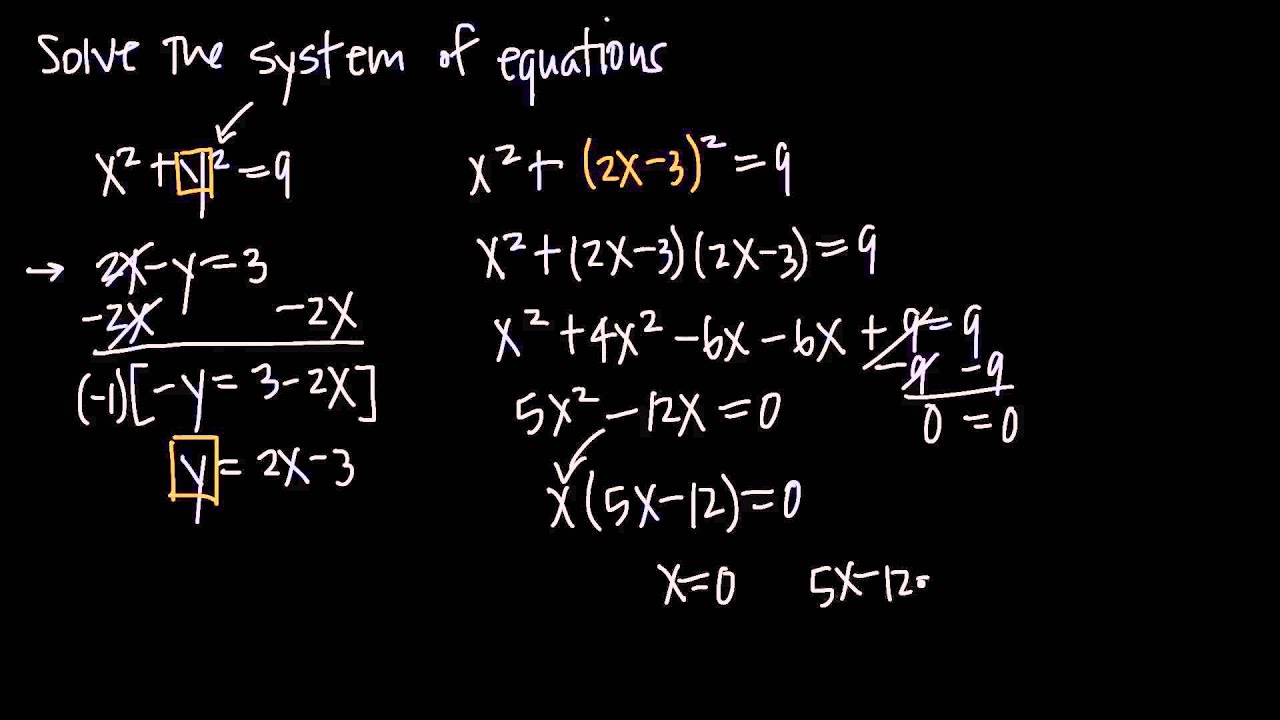 Solve The system of equations
x² + y² = 9
→ 2x - y = 3
-2x -2x
(-1)[-y = 3 - 2x]
y = 2x - 3
x² + (2x - 3)² = 9
x² + (2x - 3)(2x - 3) = 9
x² + 4x² - 6x - 6x + 9 = 9
-9 -9
0 = 0
5x² - 12x = 0
x(5x - 12) = 0
x = 0 5x - 12